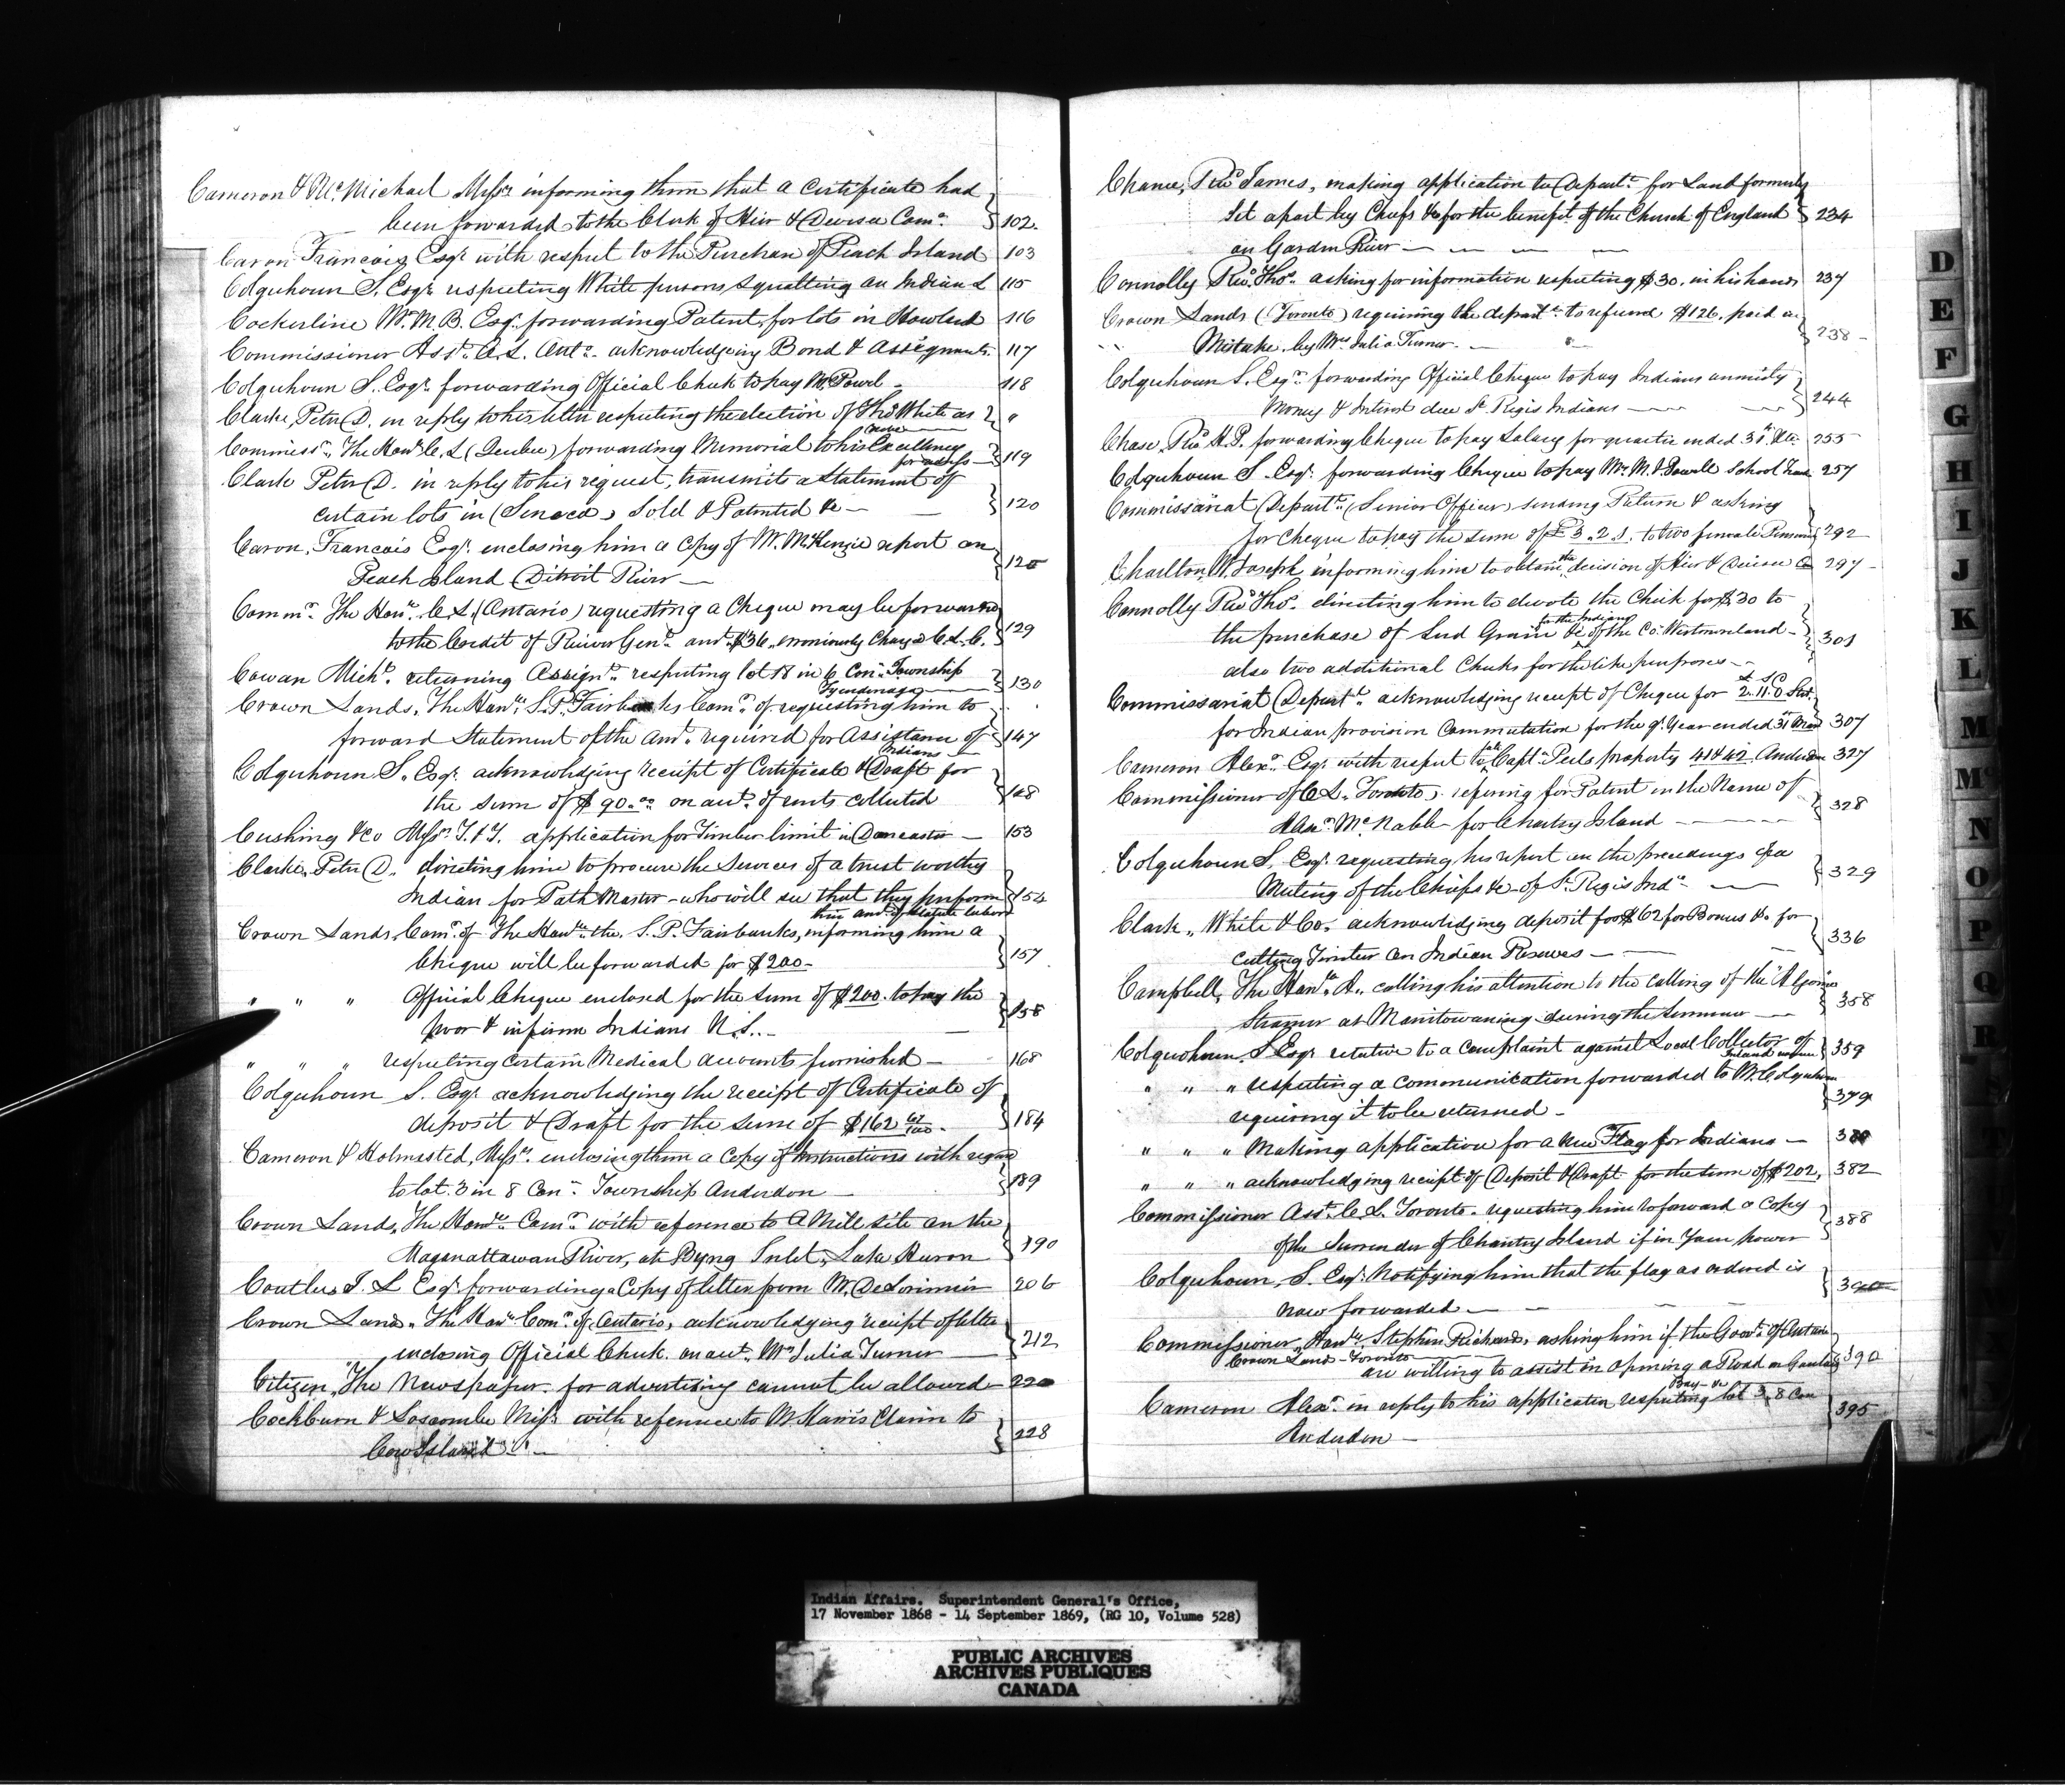 Cameron & McMichael Messrs informing them that a Certificate had
been forwarded to the Clerk of Heir & Devisee Comn. 102.
Caron Francois Esqr with respect to the Purchase of Peach Island 103
Colquhoun S. Esqr respecting White persons squatting on Indian L 115
Cockerline Wm M B. Esqr. forwarding Patent for lots in Howland 116
Commissioner Asst. C. L. Onto. acknowledging Bond & Assignmts. 117
Colquhoun S. Esqr. forwarding Official Check to pay Mr Powel 118
Clarke, Peter D. in reply to his letter respecting the election of Thos White as "
Commissr. The Honl. C. L (Quebec) forwarding Memorial to his Excellency
for address 119
Clark Peter D. in reply to his request, transmits a Statement of
certain lots in (Seneca) Sold & Patented &c 120
Caron, Francois Esqr. enclosing him a Copy of Mr. McKenzie report on
Peach Island Detroit River 120
Commr. The Honl. C. L. (Ontario) requesting a Cheque may be forwarded
to the Credit of Receiver Genl. amt. $36, erroniously Charged C. L. C. 129
Cowan Michl. returning Assignt. respecting lot 18 in 6 Con. Township
Tyendenaga 130
Crown Lands, The Honl. S. P. Fairbanks Comr. of requesting him to
forward Statement of the amt. required for Assistance of
Indians 147
Colquhoun S. Esqr. acknowledging receipt of Certificate & Draft for
the sum of $90.00 on acct. of rents collected 148
Cushing & Co Messrs T. & J. application for Timber limit in Doncaster 153
Clarke, Peter D. directing him to procure the Services of a trust worthy
Indian for Path Master - who will see that they perform
their amt. of Statute labor 154
Crown Lands, Comr. of The Honble the, S. P. Fairbanks, informing him a
Cheque will be forwarded for $200 157
" " " Official Cheque enclosed for the sum of $200. to pay the
poor & infirm Indians N.S. 158
" " " respecting Certain Medical accounts furnished 168
Colquhoun S. Esqr acknowledging the receipt of Certificate of
deposit & Draft for the sum of $162 67/100. 184
Cameron & Holmested, Messrs. enclosing them a Copy of Instructions with regard
to lot. 3 in 8 Con. Township Anderdon 189
Crown Lands, The Honble Comr. with reference to A Mill site on the
Maganattawan River, at Byng Inlet, Lake Huron 190
Coutlee, T. L Esqr. forwarding a Copy of letter from Mr. DeLorimier 206
Crown Lands, The Honl. Comr. of Ontario, acknowledging receipt of letter
enclosing Official Check. on acct. Mrs Julia Turner 212
Citizen, The Newspaper. for advertising cannot be allowed 220
Cockburn & Loscombe Messrs with reference to Mr Harris Claim to
Cow Island 228
Chance, Revd. James, making application to Depart. for Land formerly
Set apart by Chiefs &c for the benefit of the Church of England 234
on Garden River
Connolly Revd. Thos. asking for information respecting $30. in his hands 237
Crown Lands (Toronto) requiring the depart. to refund $126, paid in
Mistake by Mrs Julia Turner. 238
Colquhoun S. Esqr. forwarding Official Cheque to pay Indians annuity
Money & Interest due St. Regis Indians 244
Chase, Revd H. P. forwarding Cheque to pay Salary for quarter ended 31st. Dec. 255
Colquhoun S. Esqr. forwarding Cheque to pay Mr. M. J. Powell School Teacr 257
Commissariat Depart. (Senior Officer) sending Return & asking
for Cheque to pay the sum of £3.2.1. to two female Pensioners 292
Charlton, W. Joseph, informing him to obtain the decision of Heir & Devisee Co 297
Connolly Revd. Thos. directing him to devote the Check for $30 to
the purchase of Seed Grain &c for the Indians of the Co. Westmoreland 301
also two additional Checks for the like purposes
Commissariat Depart. acknowledging receipt of Cheque for 2.11.0 Stg.
for Indian provision Commutation for the qr. Year ended 31st Mar 307
Cameron Alexr. Esqr with respect to Captn. Peels property 41 & 42 Anderdon 327
Commissioner of C. L. Toronto, refering for Patent in the Name of
Alexr. McNabb for Chantry Island 328
Colquhoun S. Esqr. requesting his report on the preceedings of a
Meeting of the Chiefs &c of St. Regis Inds. 329
Clark, White & Co. acknowledging deposit for $62 for Bonus &c for
cutting Timber on Indian Reserves 336
Campbell, The Honble A., calling his attention to the calling of the "Algoma"
Steamer at Manitowaning during the Summer 358
Colquohoun, S Esqr relative to a Complaint against Local Collector of
Inland revenue 359
" " " respecting a communication forwarded to Mr. Colquhoun
requiring it to be returned - 379
" " " Making application for a new Flag for Indians 380
" " " acknowledging receipt of Deposit & Draft for the sum of $202, 382
Commissioner Asst. C. L. Toronto. requesting him to forward a Copy
of the Surrender of Chantry Island if in Your power 388
Colquhoun, S. Esqr. Notifying him that the flag as ordered is
now forwarded 390
Commissioner, Honble. Stephen Richards, asking him if the Govt. of Ontario
Crown Lands - Toronto are willing to assist in opening a Road on Goulais
Bay &c 390
Cameron Alexr. in reply to his application respecting lot 3, 8 Con
Anderdon 395
D
E
F
G
H
I
J
K
L
M
Mc
N
O
P
Q
R
T
Indian Affairs. Superintendent General's Office,
17 November 1868 - 14 September 1869, (RG 10, Volume 528)
PUBLIC ARCHIVES
ARCHIVES PUBLIQUES
CANADA